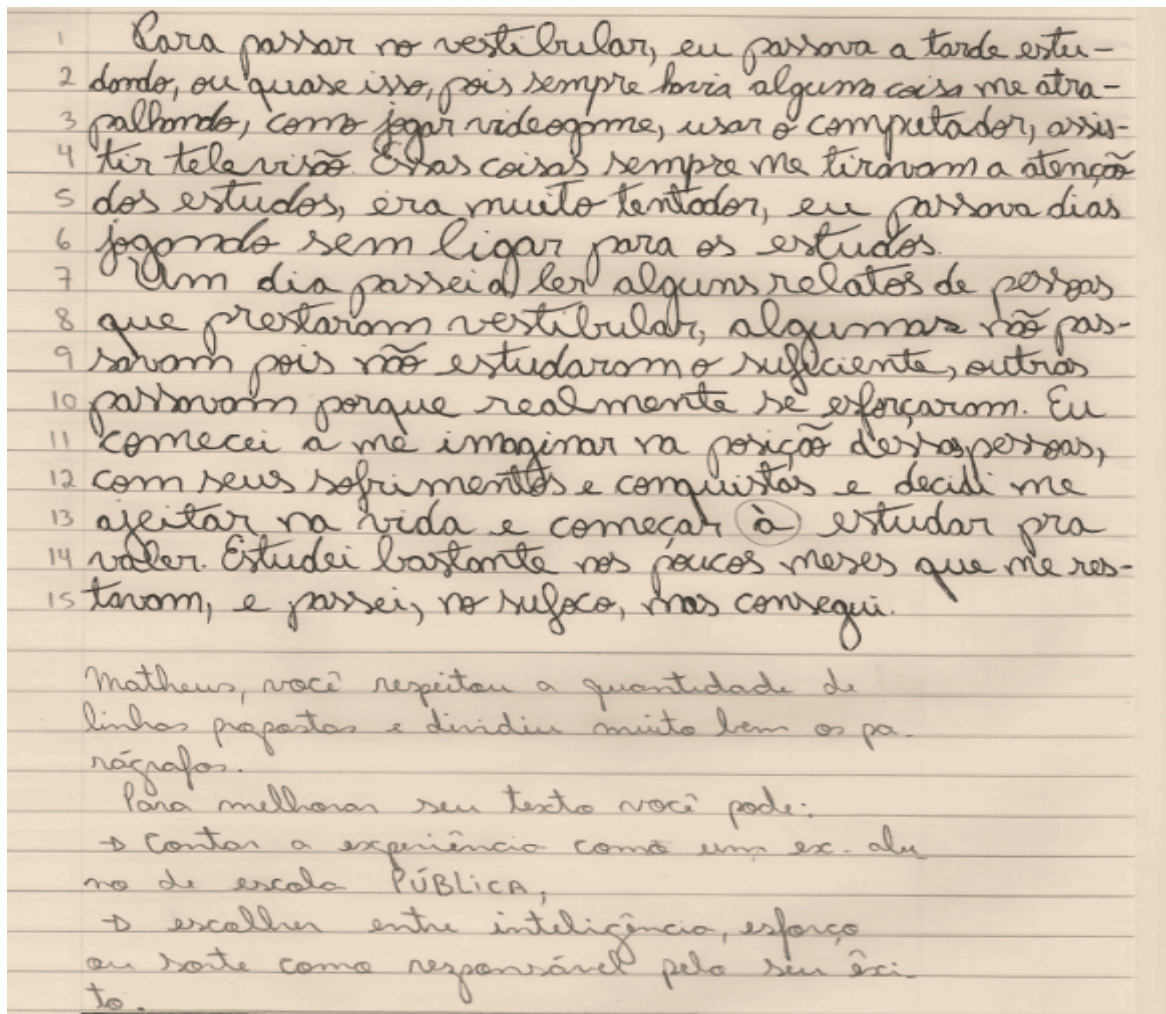 1 Para passar no vestibular, eu passava a tarde estu-
2 dando, ou quase isso, pois sempre havia alguma coisa me atra-
3 palhando, como jogar videogame, usar o computador, assis-
4 tir televisão. Essas coisas sempre me tiravam a atenção
5 dos estudos, era muito tentador, eu passava dias
6 jogando sem ligar para os estudos.
7 Um dia passei a ler alguns relatos de pessoas
8 que prestaram vestibular, algumas não pas-
9 savam pois não estudaram o suficiente, outras
10 passavam porque realmente se esforçaram. Eu
11 comecei a me imaginar na posição dessas pessoas,
12 com seus sofrimentos e conquistas e decidi me
13 ajeitar na vida e começar à estudar pra
14 valer. Estudei bastante nos poucos meses que me res-
15 tavam, e passei, no sufoco, mas consegui.
Matheus, você respeitou a quantidade de
linhas propostas e dividiu muito bem os pa-
rágrafos.
Para melhorar seu texto você pode:
→ Contar a experiência como um ex-alu
no de escola PÚBLICA,
→ escolher entre inteligência, esforço
ou sorte como responsável pelo seu êxi-
to.